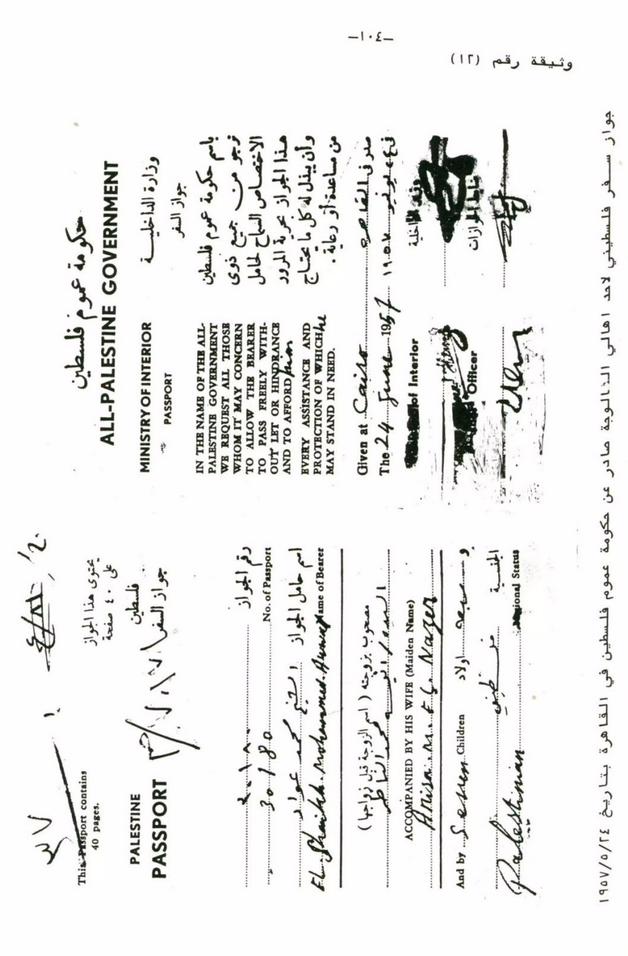 -١٠٤-
وثيقة رقم (١٢)
يحتوى هذا الجواز
على ٤٠ صفحة
This Passport contains
40 pages.
فلسطين
جواز السفر
PALESTINE
PASSPORT
رقم الجواز
No. of Passport
30180
اسم حامل الجواز
Name of Bearer
El-Shaikh Mohammed
مصحوب بزوجته (اسم الزوجة قبل زواجها)
ACCOMPANIED BY HIS WIFE (Maiden Name)
Anisa M. El Nazer
و اولاد
And by Seven Children
الجنسية فلسطيني
National Status
Palestinian
حكومة عموم فلسطين
ALL-PALESTINE GOVERNMENT
وزارة الداخلية
MINISTRY OF INTERIOR
جواز السفر
PASSPORT
باسم حكومة عموم فلسطين
نرجو من جميع ذوى
الاختصاص السماح لحامل
هذا الجواز بحرية المرور
وأن يبذل له كل ما يحتاج
من مساعدة أو رعاية.
IN THE NAME OF THE ALL-
PALESTINE GOVERNMENT
WE REQUEST ALL THOSE
WHOM IT MAY CONCERN
TO ALLOW THE BEARER
TO PASS FREELY WITH-
OUT LET OR HINDRANCE
AND TO AFFORD him
EVERY ASSISTANCE AND
PROTECTION OF WHICH he
MAY STAND IN NEED.
صدر فى القاهرة
Given at Cairo
The 24 June 1957
of Interior
Officer
جواز سفر فلسطيني لاحد اهالي الفالوجة صادر عن حكومة عموم فلسطين في القاهرة بتاريخ ١٩٥٧/٥/٢٤